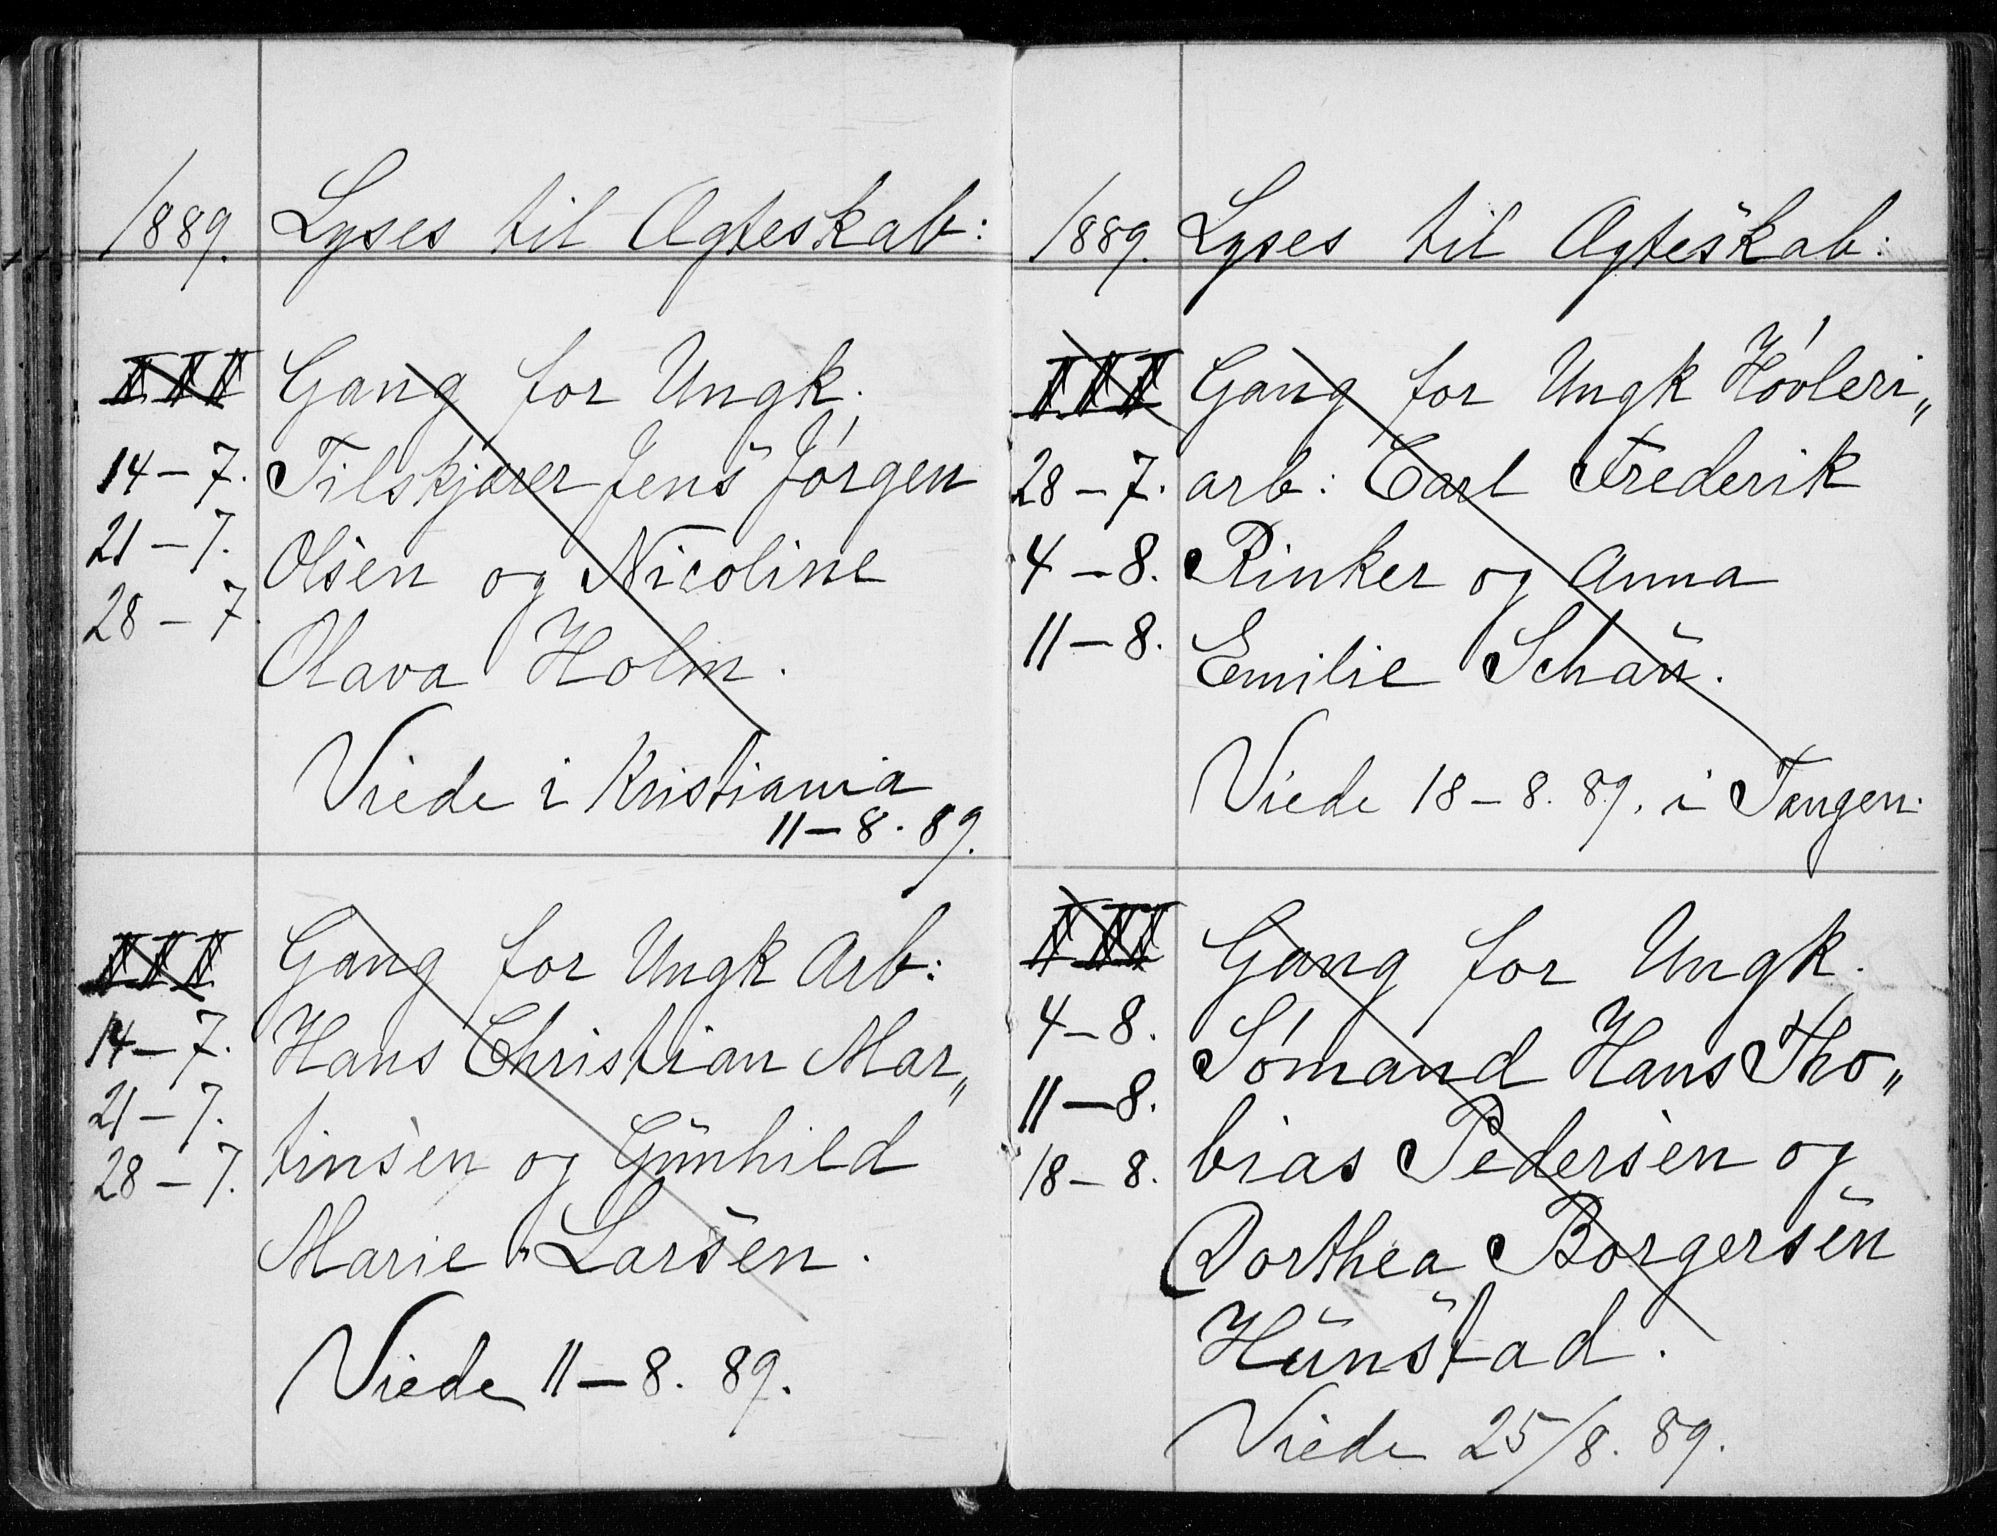 1889. Lyses til Ægteskab:
III Gang for Ungk.
14 – 7. Tilskjærer Jens Jørgen
21 – 7. Olsen og Nicoline
28 – 7. Olava Holm.
Viede i Kristiania
11 – 8. 89.
III Gang for Ungk Arb:
14 – 7. Hans Christian Mar„
21 – 7. tinsen og Gunhild
28 – 7. Marie Larsen.
Viede 11 – 8. 89.
1889. Lyses til Ægteskab:
III Gang for Ungk Høvleri„
28 – 7. arb: Carl Frederik
4 – 8. Rinker og Anna
11 – 8. Emilie
Viede 18 – 8. 89. i Tangen.
III Gang for Ungk.
4 – 8. Sømand Hans Tho„
11 – 8. bias Pedersen og
18 – 8. Dorthea Borgersen
Hunstad.
Viede 25/8. 89.